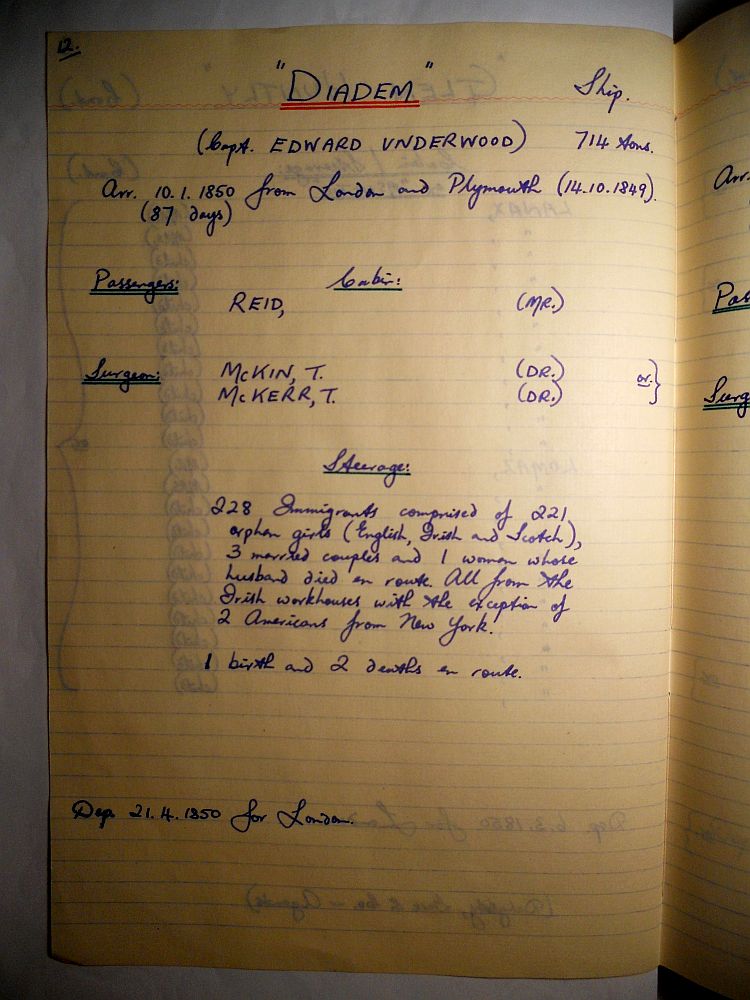 12.
"DIADEM" Ship.
(Capt. EDWARD UNDERWOOD) 714 tons.
Arr. 10.1.1850 from London and Plymouth (14.10.1849).
(87 days)
Passengers: Cabin:
REID, (MR.)
Surgeon: McKIN, T. (DR.) or }
McKERR, T. (DR.)
Steerage:
228 Immigrants comprised of 221
orphan girls (English, Irish and Scotch),
3 married couples and 1 woman whose
husband died en route. All from the
Irish workhouses with the exception of
2 Americans from New York.
1 birth and 2 deaths en route.
Dep. 21.4.1850 for London.
Arr.
Pas
Surg